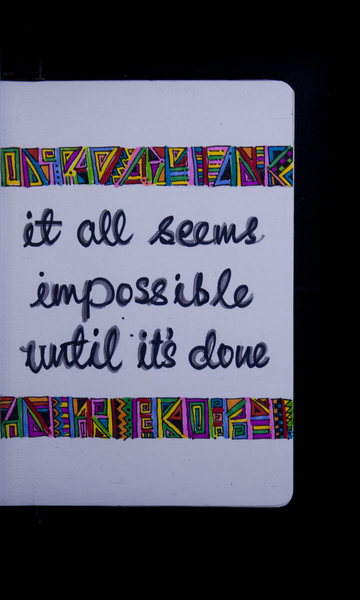 it all seems
impossible
until it's done